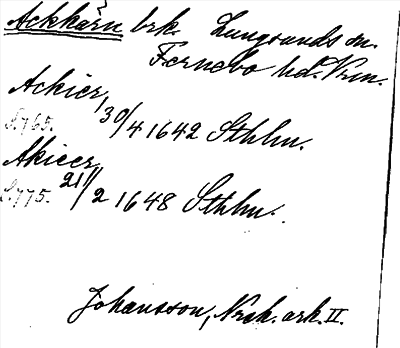 Ackkärn brk. Lungsunds sn.
Fernebo hd. Vrm.
Ackier,
S.765. 30/4 1642 Sthlm.
Akieer,
S.775. 21/2 1648 Sthlm.
Johansson, Nrek. ark. II.